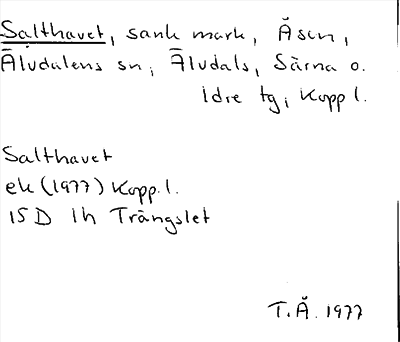 Salthavet, sank mark, Åsen,
Älvdalens sn; Älvdals, Särna o.
Idre tg; Kopp l.
Salthavet
ek (1977) Kopp. l.
15 D 1h Trängslet
T. Å. 1977